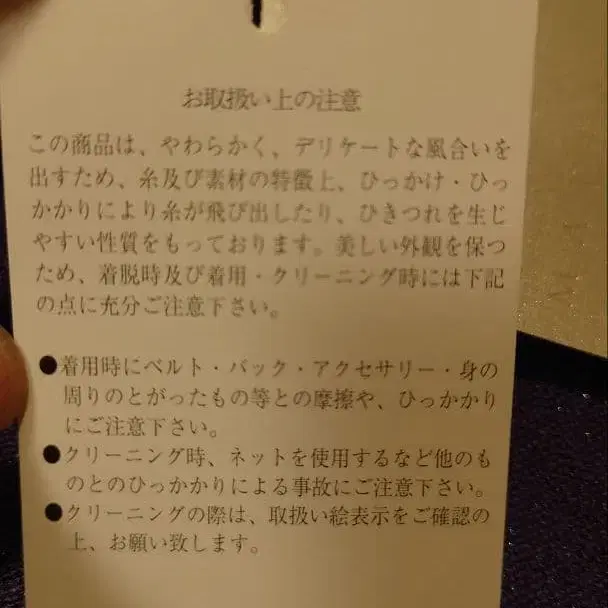 お取扱い上の注意
この商品は、やわらかく、デリケートな風合いを
出すため、糸及び素材の特徴上、ひっかけ・ひっ
かかりにより糸が飛び出したり、ひきつれを生じ
やすい性質をもっております。美しい外観を保つ
ため、着脱時及び着用・クリーニング時には下記
の点に充分ご注意下さい。
●着用時にベルト・バック・アクセサリー・身の
周りのとがったもの等との摩擦や、ひっかかり
にご注意下さい。
●クリーニング時、ネットを使用するなど他のも
のとのひっかかりによる事故にご注意下さい。
●クリーニングの際は、取扱い絵表示をご確認の
上、お願い致します。